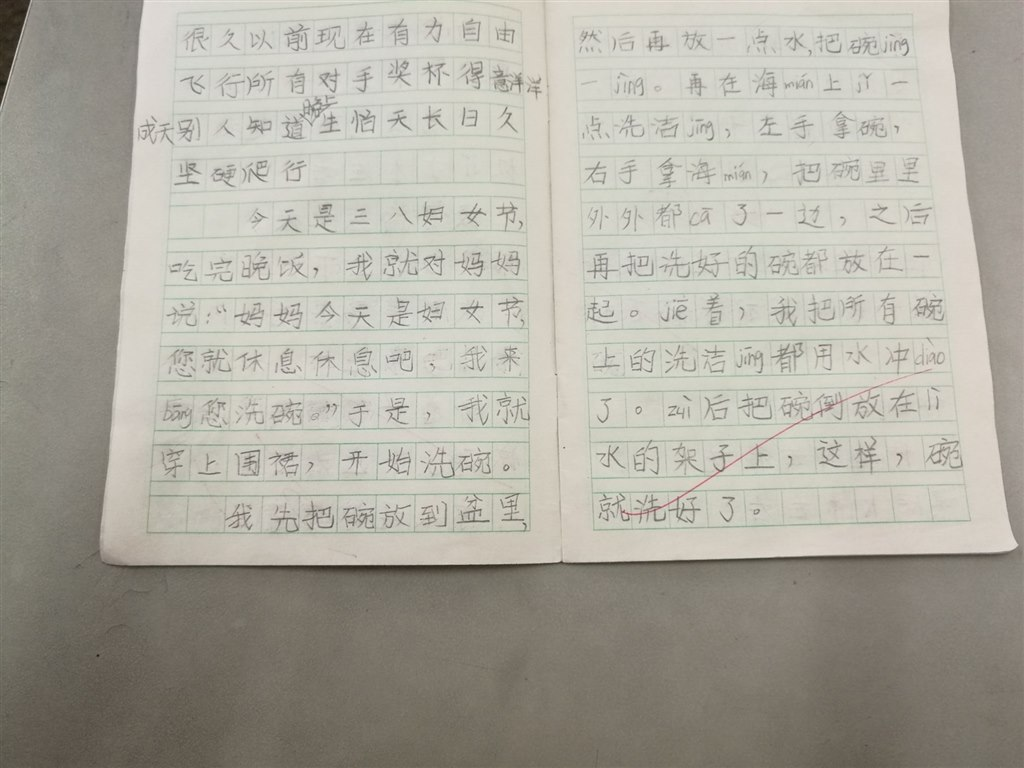 很久以前现在有力自由
飞行所有对手奖杯得意洋洋
成天别人知道陌生怕天长日久
坚硬爬行
今天是三八妇女节,
吃完晚饭，我就对妈妈
说:“妈妈今天是妇女节,
您就休息休息吧，我来
bāng您洗碗。”于是，我就
穿上围裙，开始洗碗。
我先把碗放到盆里,
然后再放一点水,把碗jìng
一jìng。再在海mián上jǐ一
点洗洁jīng，左手拿碗，
右手拿海mián，把碗里里
外外都cā了一边，之后
再把洗好的碗都放在一
起。jiē着，我把所有碗
上的洗洁jīng都用水冲diào
了。zuì后把碗倒放在lì
水的架子上，这样，碗
就洗好了。